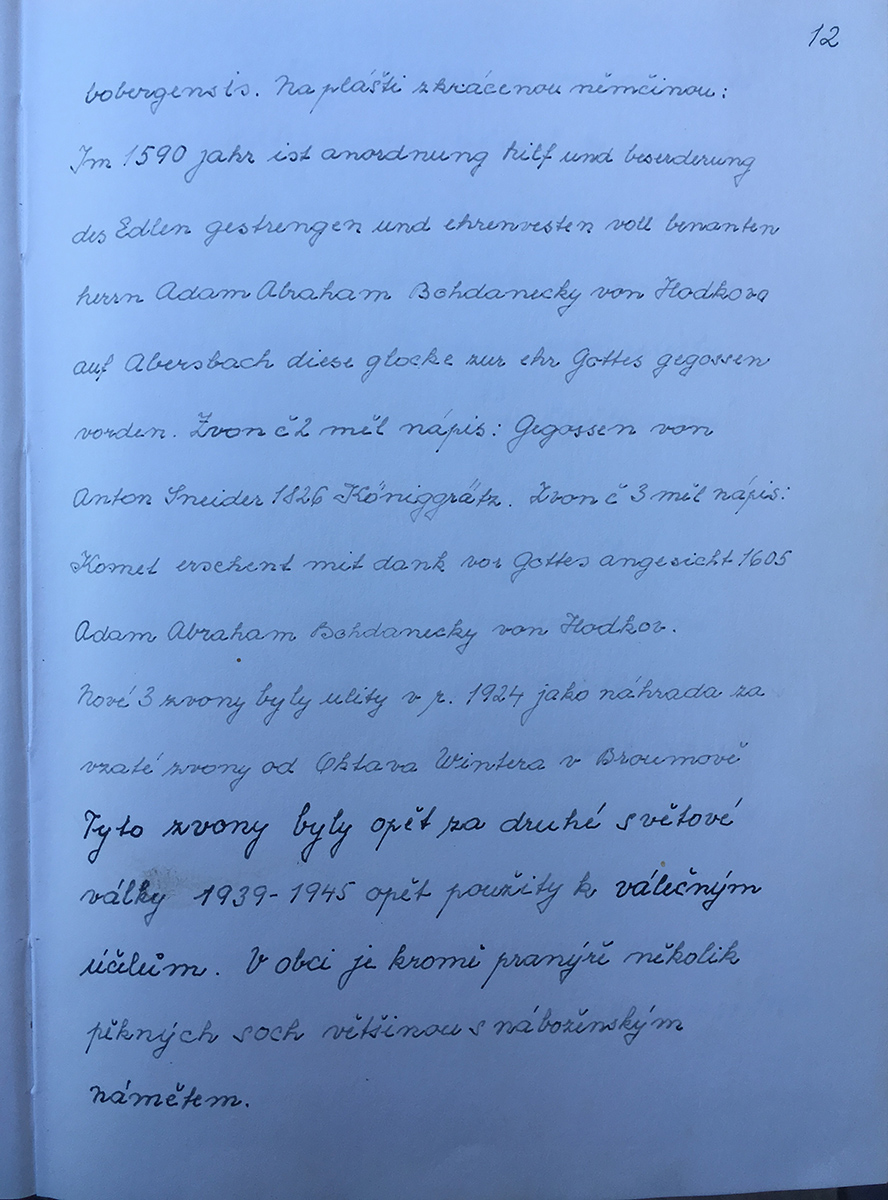 12
bobergensis. Na plášti zkrácenou němčinou:
Im 1590 jahr ist anordnung hilf und beserderung
des Edlen gestrengen und ehrenvesten voll benanten
herrn Adam Abraham Bohdanecky von Hodkova
auf Abersbach diese glocke zur ehr Gottes gegossen
vorden. Zvon č 2 měl nápis: Gegossen von
Anton Sneider 1826 Königgrätz. Zvon č 3 měl nápis:
Komet erschent mit dank vor Gottes angesicht 1605
Adam Abraham Bohdanecky von Hodkov.
Nové 3 zvony byly ulity v r. 1924 jako náhrada za
vzaté zvony od Oktava Wintera v Broumově
Tyto zvony byly opět za druhé světové
války 1939-1945 opět použity k válečným
účelům. V obci je kromě pranýře několik
pěkných soch většinou s náboženským
námětem.